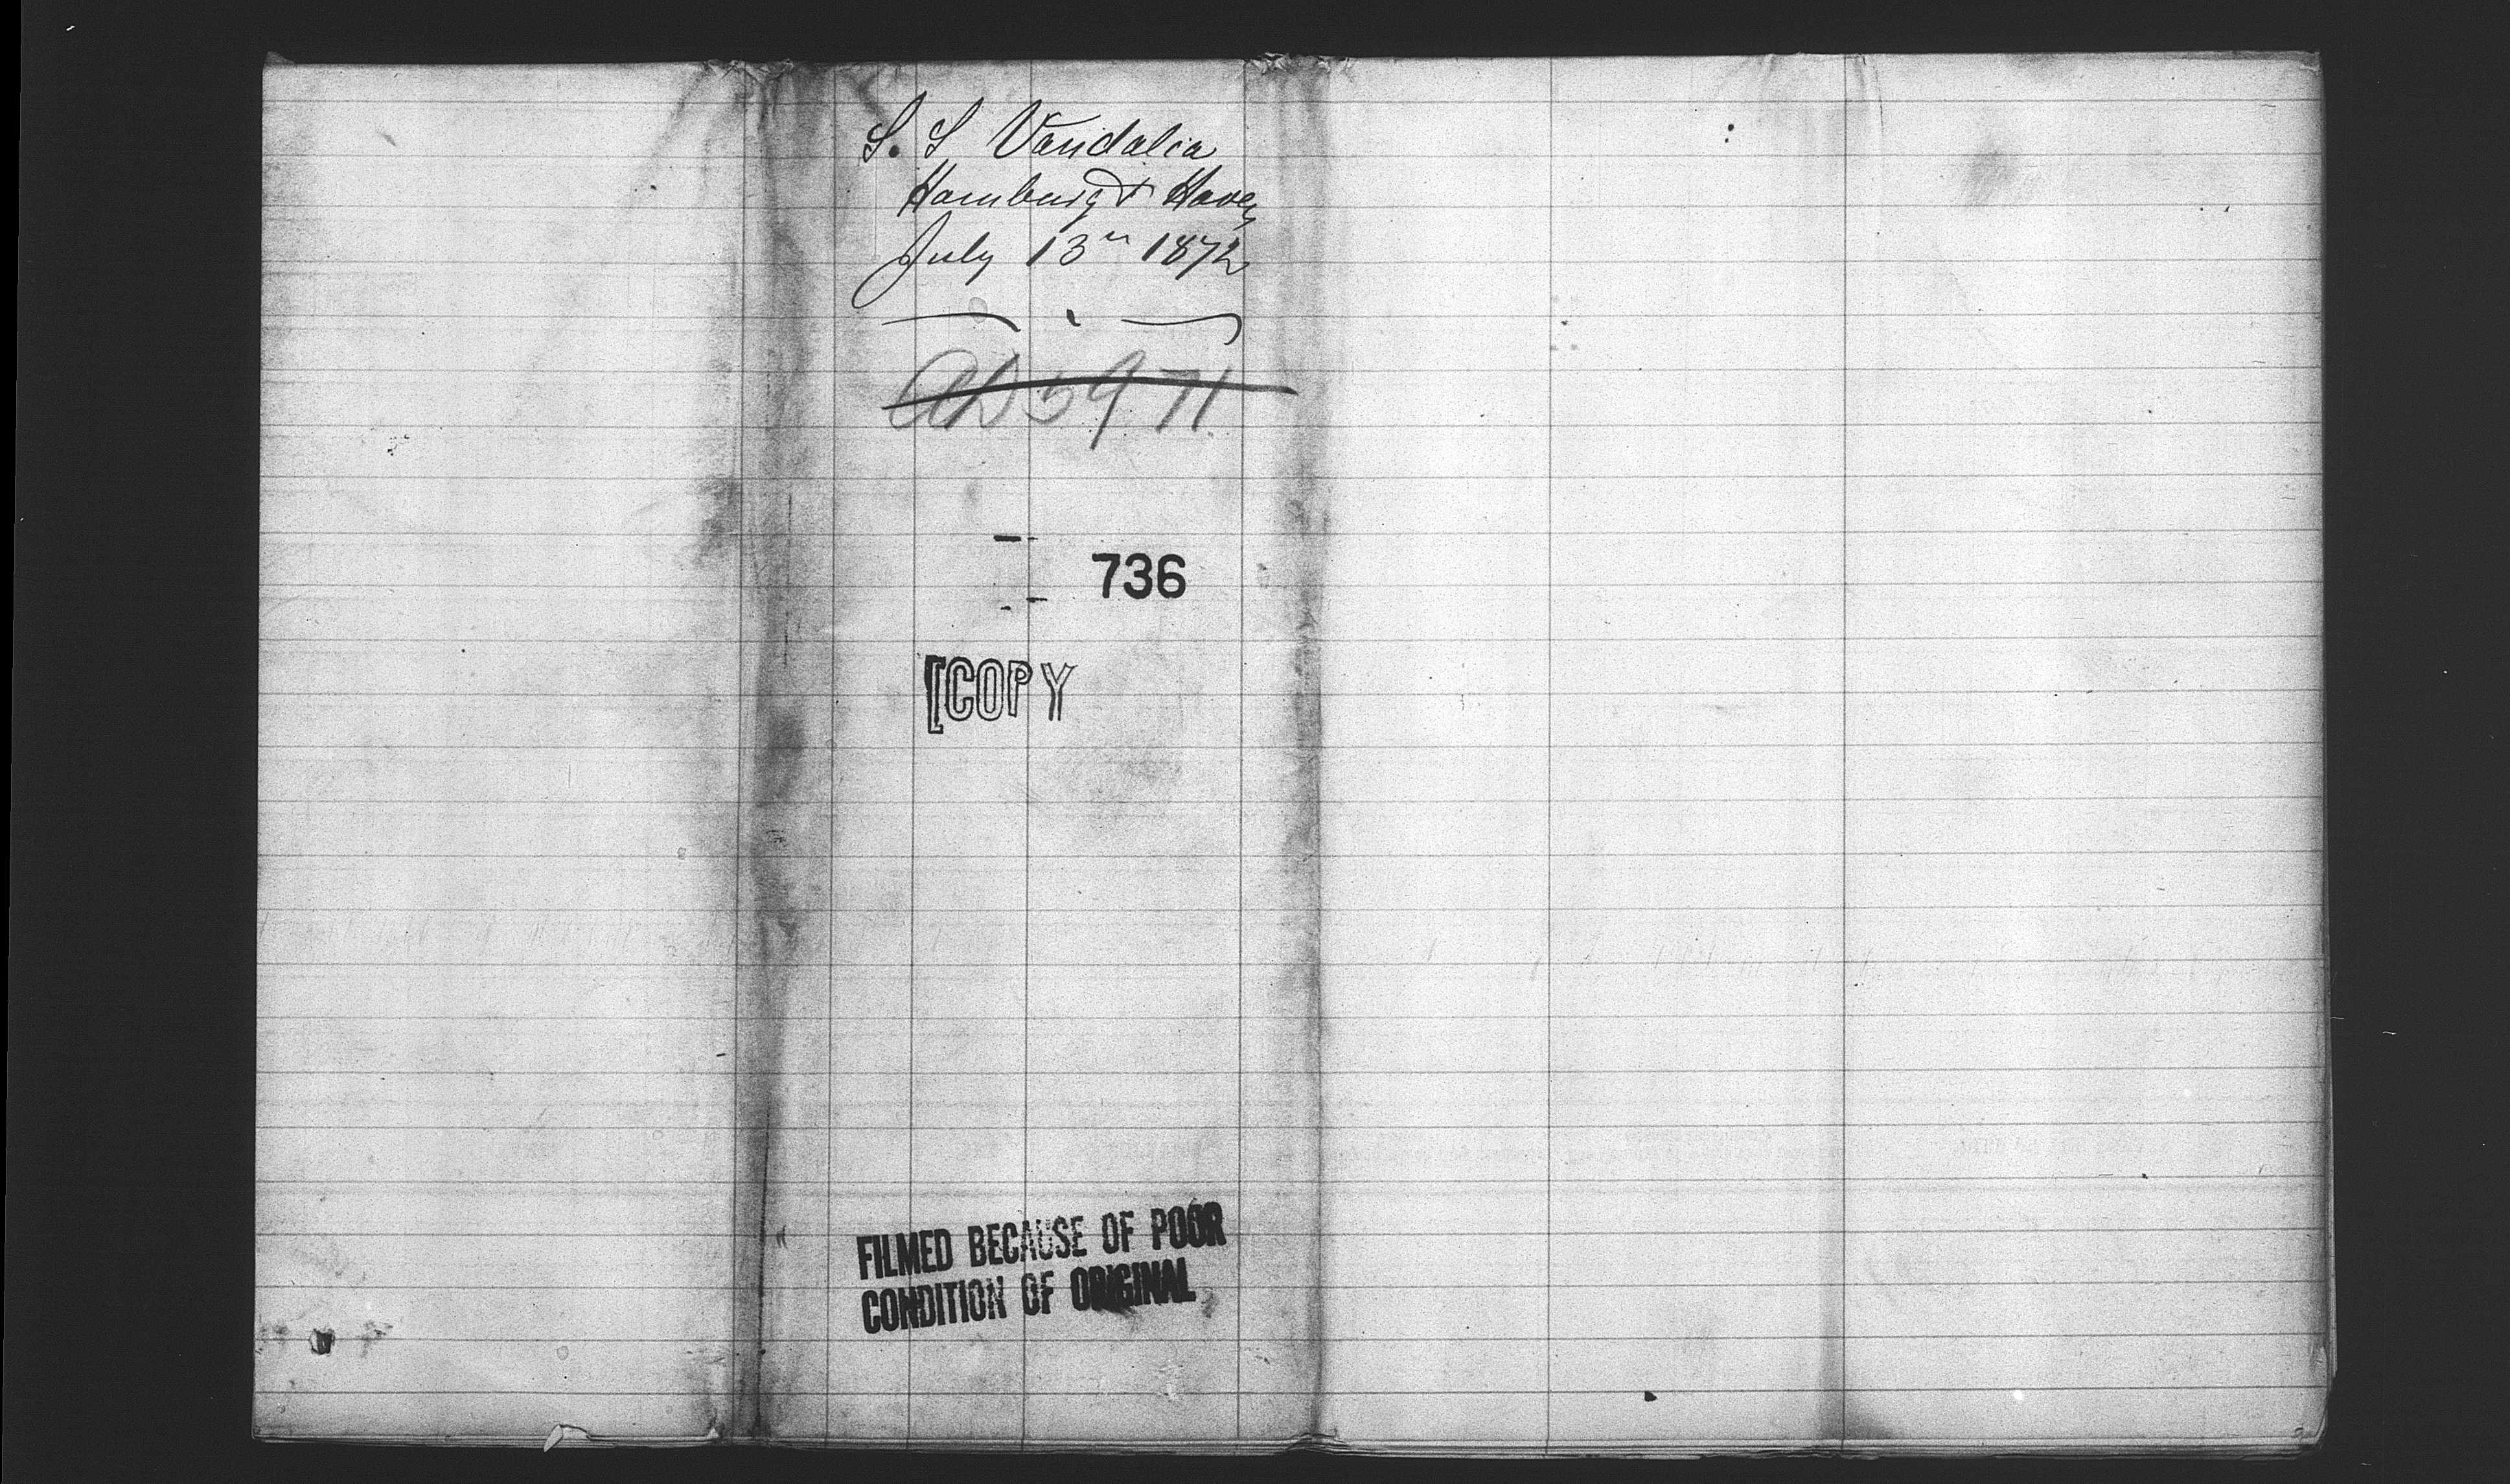 S. S Vandalia
Hamburg & Havre
July 13th 1872
AD 5971
736
[COPY
FILMED BECAUSE OF POOR
CONDITION OF ORIGINAL